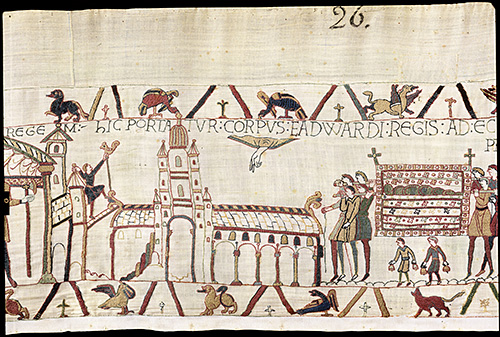 26.
REGEM: hIC PORTATVR: CORPVS: EADWARDI: REGIS: AD: EC
P